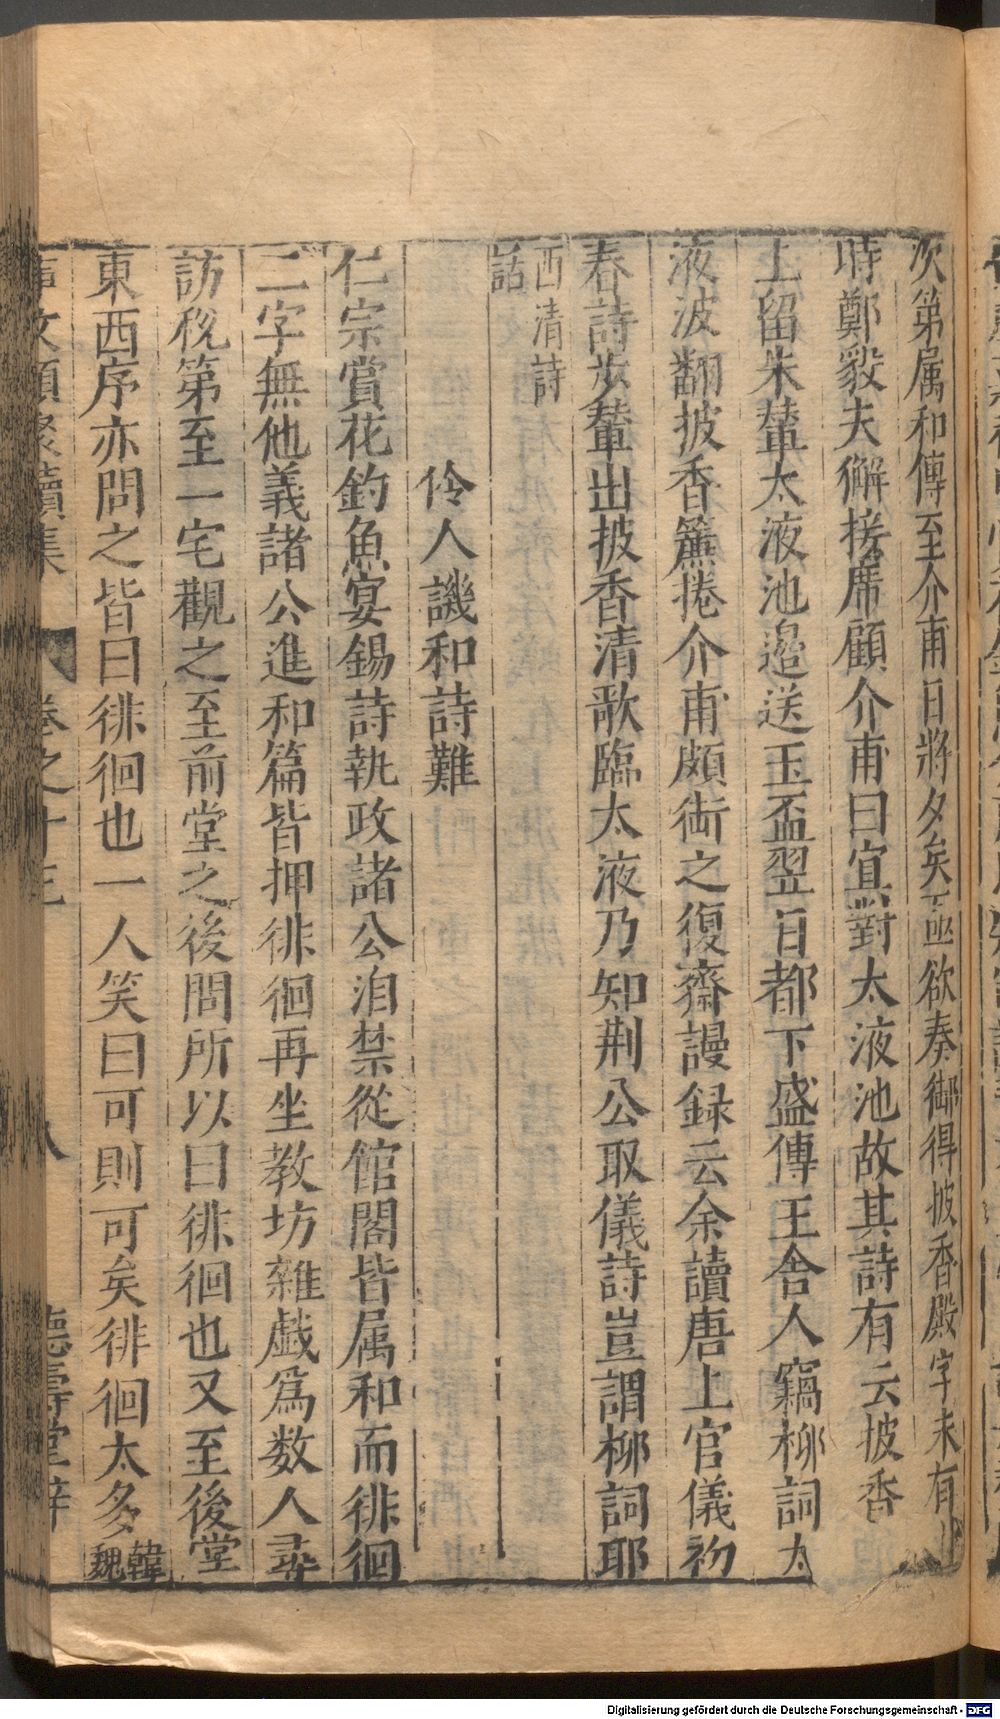 次第属和傳至介甫日將夕矣亟欲奏御得披香殿字未有
時鄭毅夫獬接席顧介甫曰宜對太液池故其詩有云披香
上留朱輦太液池邉送玉盃翌日都下盛傳王舎人竊柳詞太
液波翻披香簾捲介甫頗銜之復齋謾録云余讀唐上官儀初
春詩歩輦出披香清歌臨太液乃知荆公取儀詩豈謂柳詞耶
西清詩
話
伶人譏和詩難
仁宗賞花釣魚宴錫詩執政諸公洎禁從館閣皆属和而徘徊
二字無他義諸公進和篇皆押徘徊再坐教坊雜戯為数人尋
訪稅第至一宅觀之至前堂之後問所以曰徘徊也又至後堂
東西序亦問之皆曰徘徊也一人笑曰可則可矣徘徊太多
韓
魏
事文類聚續集 卷之十三 八 德壽堂梓
Digitalisierung gefördert durch die Deutsche Forschungsgemeinschaft - DFG